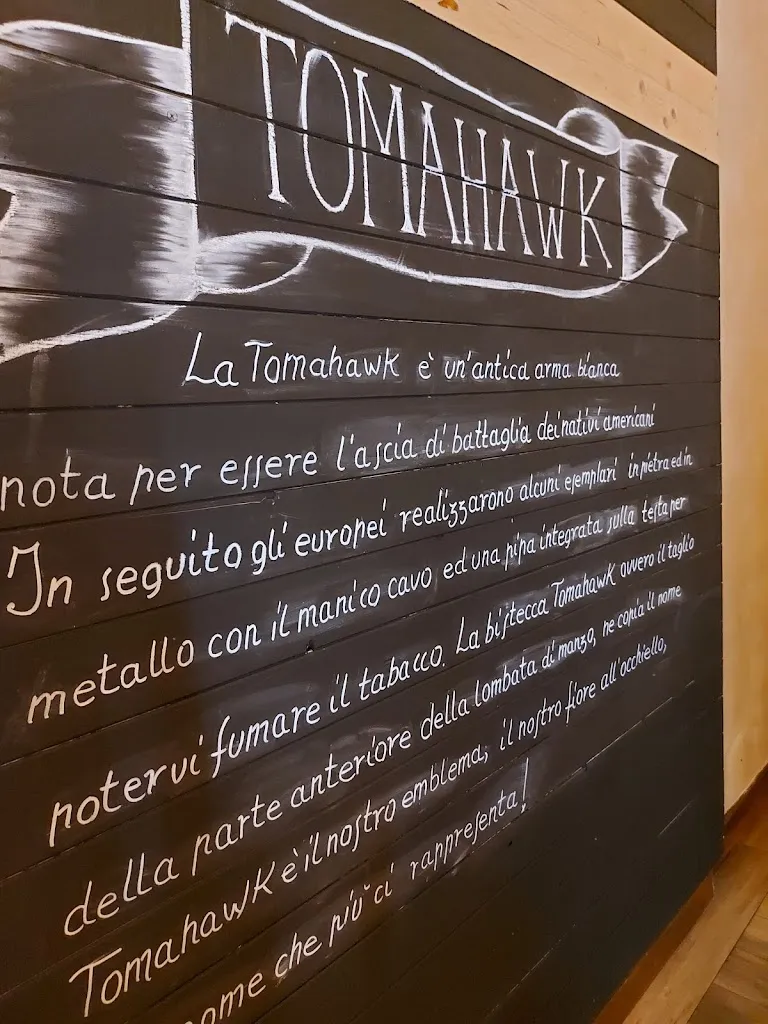 TOMAHAWK
La Tomahawk è un'antica arma bianca
nota per essere l'ascia di battaglia dei nativi americani
In seguito gli europei realizzarono alcuni esemplari in pietra ed in
metallo con il manico cavo ed una pipa integrata sulla testa per
potervi fumare il tabacco. La bistecca Tomahawk ovvero il taglio
della parte anteriore della lombata di manzo, ne copia il nome
Tomahawk è il nostro emblema, il nostro fiore all'occhiello,
nome che più ci rappresenta!